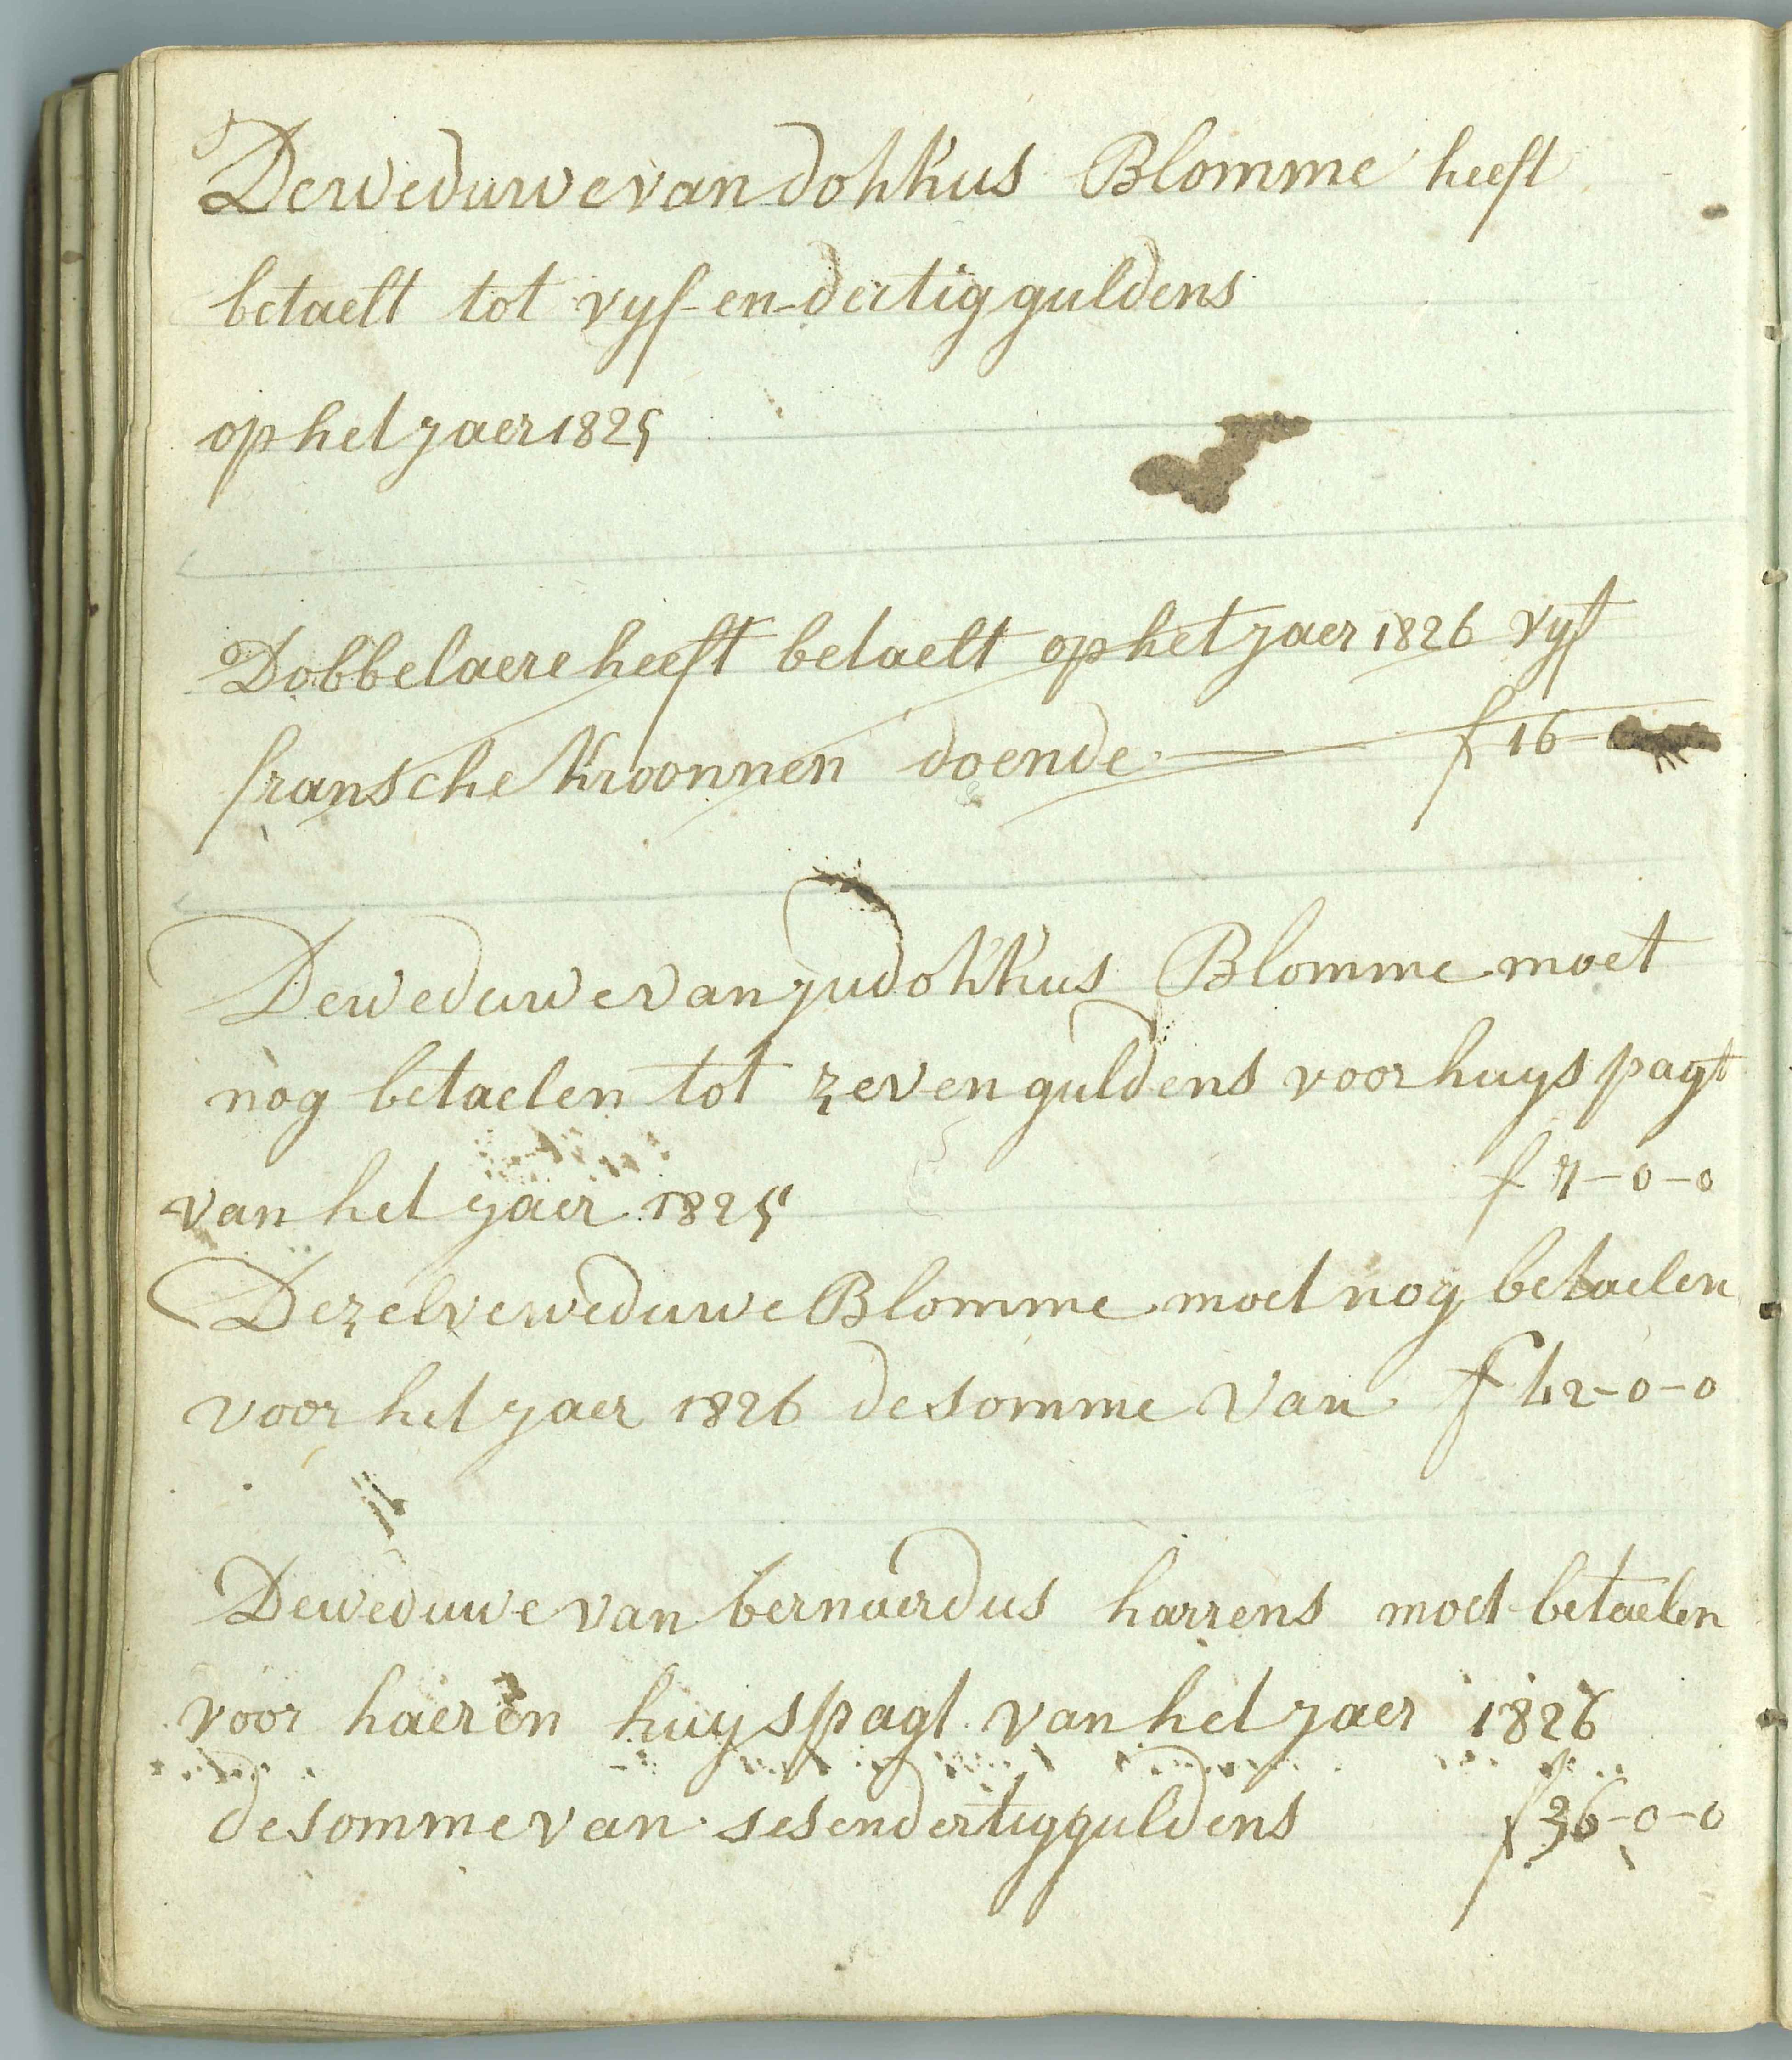 De weduwe van dokkus Blomme heeft
betaelt tot vyf-en-dertig guldens
op het jaer 1825
Dobbelaere heeft betaelt op het jaer 1826 vyf
fransche kroonnen doende f 16-
De weduwe van judokkus Blomme moet
nog betaelen tot zeven guldens voor huys pagt
van het jaer 1825 f 7-0-0
De zelve weduwe Blomme moet nog betaelen
voor het jaer 1826 de somme van f 42-0-0
De weduwe van bernaerdus harrens moet betaelen
voor haeren huys pagt van het jaer 1826
de somme van sesendertig guldens f 36-0-0